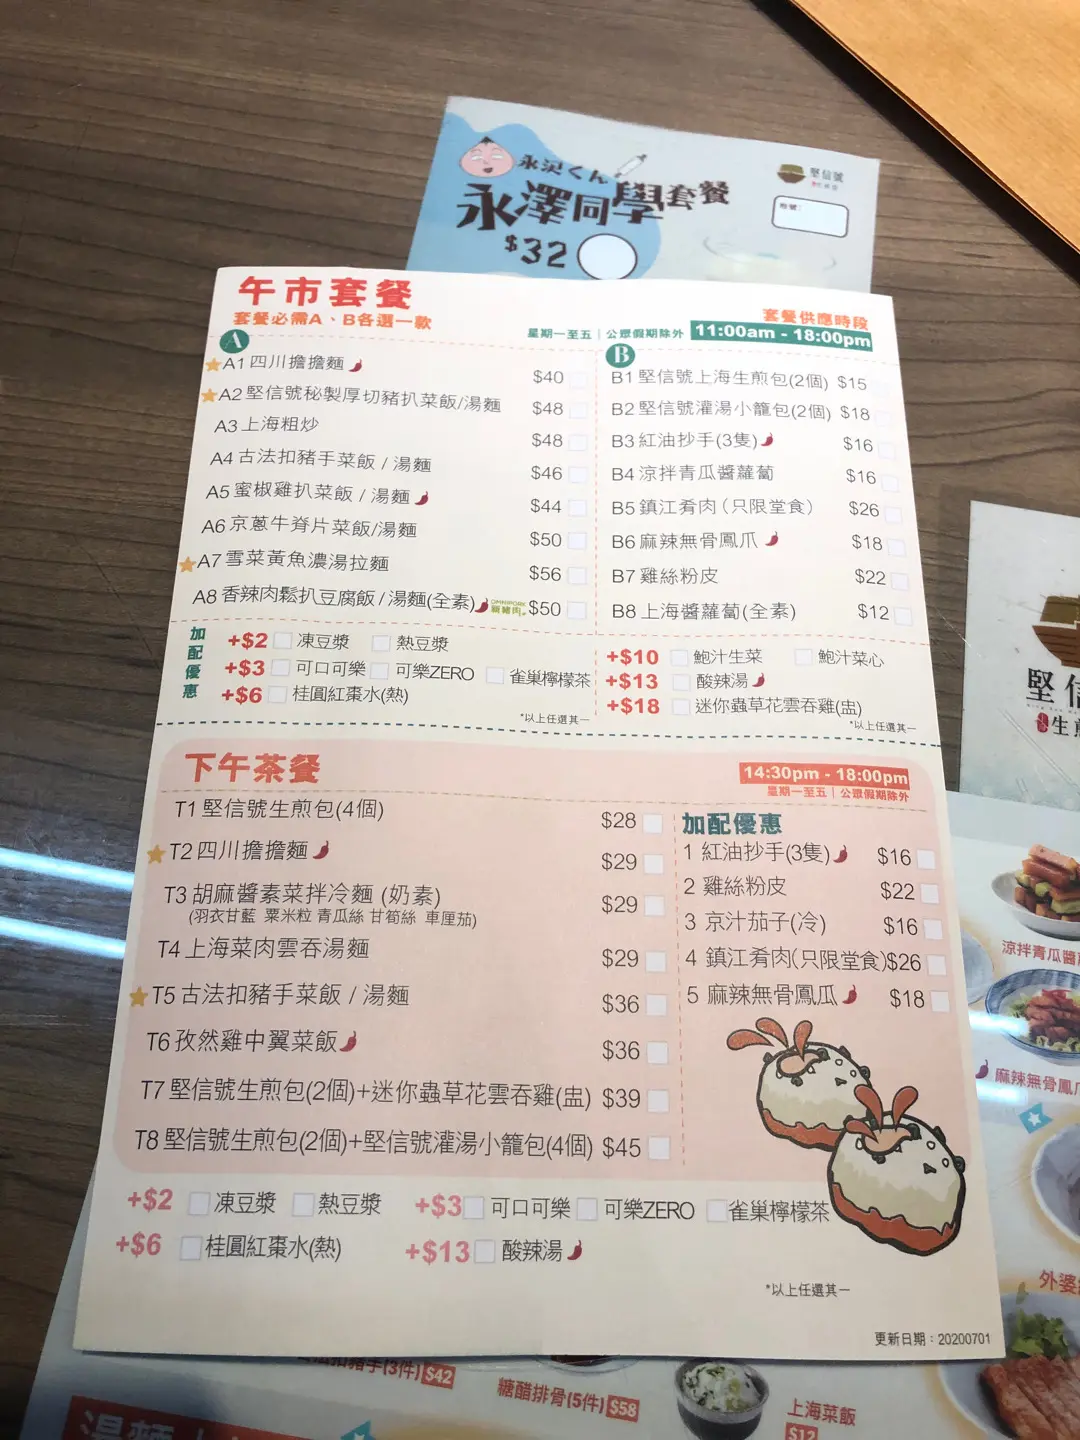 永沢くん
永澤同學套餐
$32
堅信號
午市套餐
套餐必需A、B各選一款
套餐供應時段
星期一至五 | 公眾假期除外 11:00am - 18:00pm
A
A1 四川擔擔麵 $40
A2 堅信號秘製厚切豬扒菜飯/湯麵 $48
A3 上海粗炒 $48
A4 古法扣豬手菜飯 / 湯麵 $46
A5 蜜椒雞扒菜飯 / 湯麵 $44
A6 京蔥牛脊片菜飯/湯麵 $50
A7 雪菜黃魚濃湯拉麵 $56
A8 香辣肉鬆扒豆腐飯 / 湯麵(全素) OMNIPORK 新豬肉 $50
B
B1 堅信號上海生煎包(2個) $15
B2 堅信號灌湯小籠包(2個) $18
B3 紅油抄手(3隻) $16
B4 涼拌青瓜醬蘿蔔 $16
B5 鎮江肴肉(只限堂食) $26
B6 麻辣無骨鳳爪 $18
B7 雞絲粉皮 $22
B8 上海醬蘿蔔(全素) $12
加配優惠
+$2 凍豆漿 熱豆漿
+$3 可口可樂 可樂ZERO 雀巢檸檬茶
+$6 桂圓紅棗水(熱)
*以上任選其一
+$10 鮑汁生菜 鮑汁菜心
+$13 酸辣湯
+$18 迷你蟲草花雲吞雞(盅)
*以上任選其一
下午茶餐
14:30pm - 18:00pm
星期一至五 | 公眾假期除外
T1 堅信號生煎包(4個) $28
T2 四川擔擔麵 $29
T3 胡麻醬素菜拌冷麵 (奶素) $29
(羽衣甘藍 粟米粒 青瓜絲 甘筍絲 車厘茄)
T4 上海菜肉雲吞湯麵 $29
T5 古法扣豬手菜飯 / 湯麵 $36
T6 孜然雞中翼菜飯 $36
T7 堅信號生煎包(2個)+迷你蟲草花雲吞雞(盅) $39
T8 堅信號生煎包(2個)+堅信號灌湯小籠包(4個) $45
加配優惠
1 紅油抄手(3隻) $16
2 雞絲粉皮 $22
3 京汁茄子(冷) $16
4 鎮江肴肉(只限堂食) $26
5 麻辣無骨鳳瓜 $18
+$2 凍豆漿 熱豆漿 +$3 可口可樂 可樂ZERO 雀巢檸檬茶
+$6 桂圓紅棗水(熱) +$13 酸辣湯
*以上任選其一
更新日期：20200701
堅信
生煎
涼拌青瓜醬
麻辣無骨鳳爪
外婆
扣豬手(3件) $42
糖醋排骨(5件) $58
上海菜飯
$12